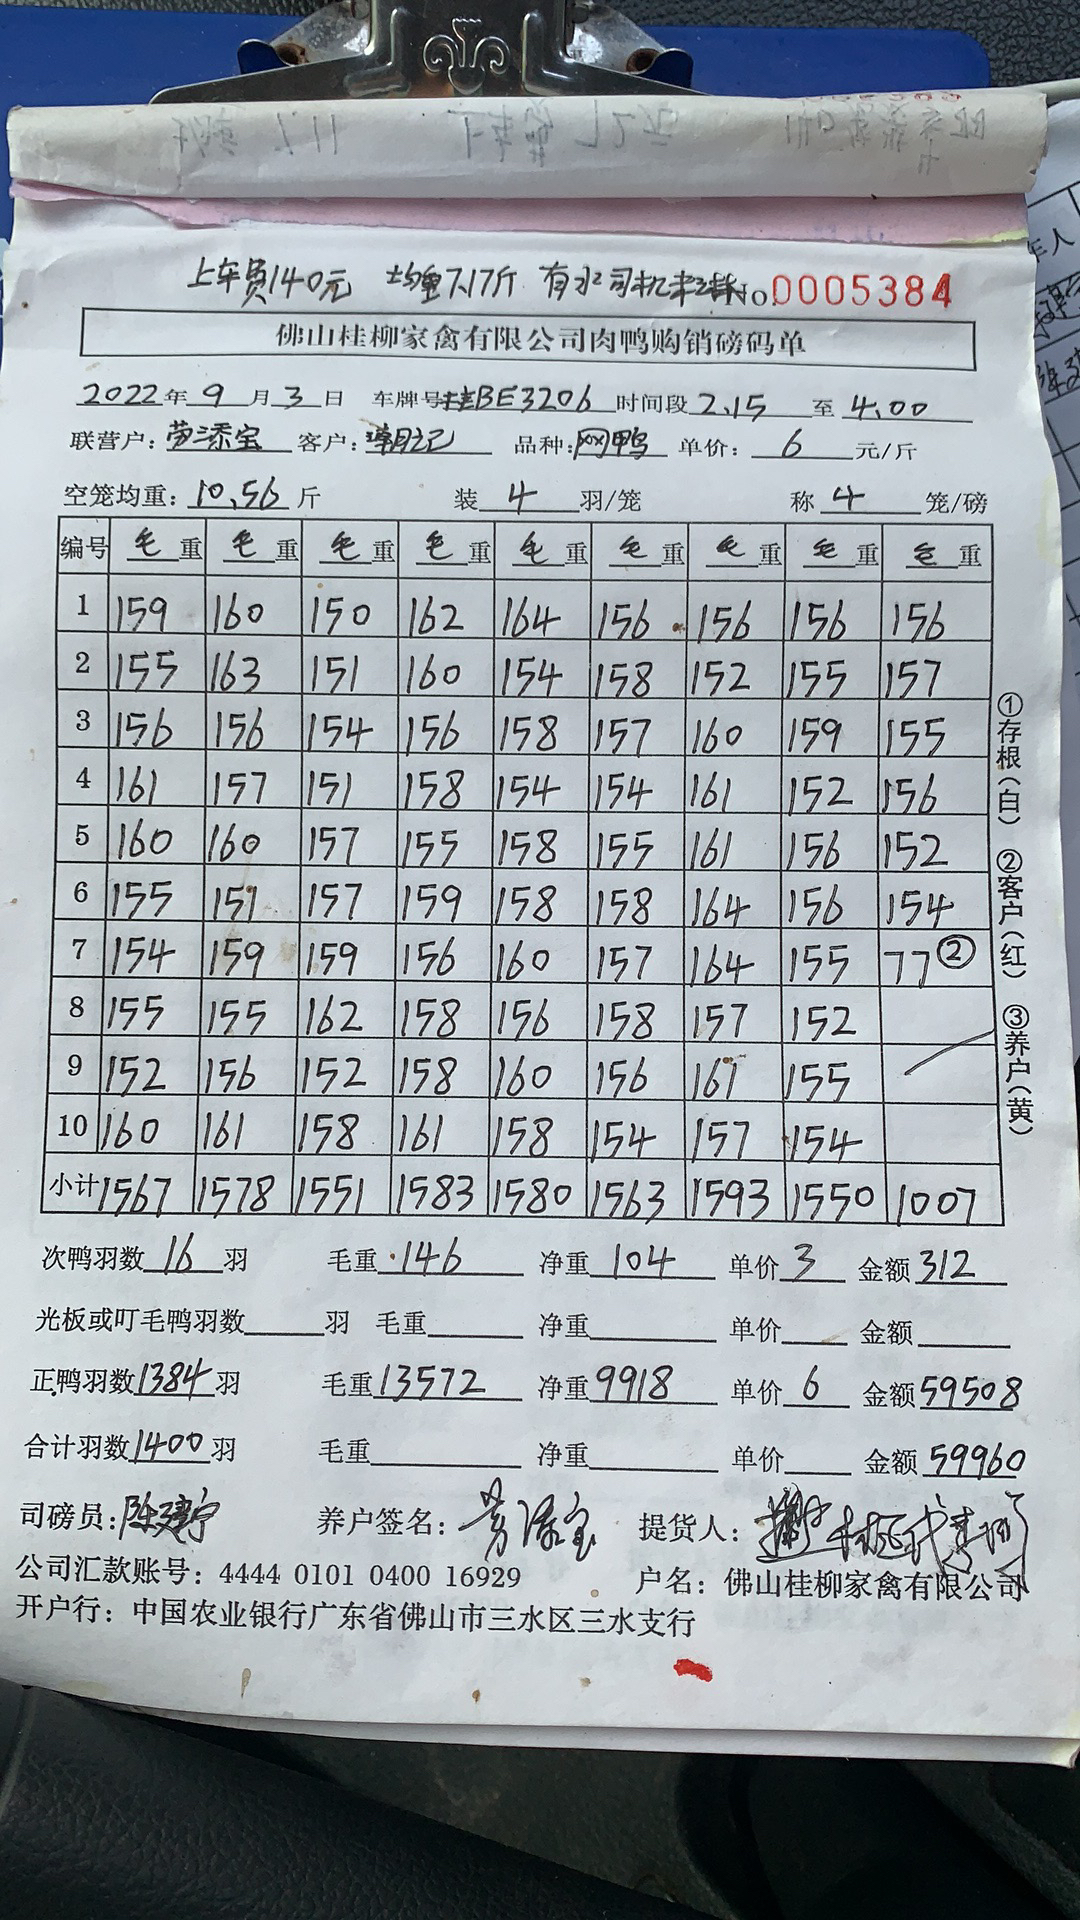 上车费140元 均重7.17斤 有水 司机 No.0005384
佛山桂柳家禽有限公司肉鸭购销磅码单
2022年9月3日 车牌号桂BE3206 时间段2.15至4.00
联营户:劳添宝 客户:潮记 品种:网鸭 单价:6元/斤
空笼均重:10.56斤 装4羽/笼 称4笼/磅
编号 毛重 毛重 毛重 毛重 毛重 毛重 毛重 毛重 毛重
1 159 160 150 162 164 156 156 156 156
2 155 163 151 160 154 158 152 155 157
3 156 156 154 156 158 157 160 159 155
4 161 157 151 158 154 154 161 152 156
5 160 160 157 155 158 155 161 156 152
6 155 151 157 159 158 158 164 156 154
7 154 159 159 156 160 157 164 155 77②
8 155 155 162 158 156 158 157 152
9 152 156 152 158 160 156 161 155
10 160 161 158 161 158 154 157 154
小计 1567 1578 1551 1583 1580 1563 1593 1550 1007
次鸭羽数16羽 毛重146 净重104 单价3 金额312
光板或叮毛鸭羽数 羽 毛重 净重 单价 金额
正鸭羽数1384羽 毛重13572 净重9918 单价6 金额59508
合计羽数1400羽 毛重 净重 单价 金额59960
司磅员:陈建宁 养户签名:劳添宝 提货人:
公司汇款账号:4444 0101 0400 16929 户名:佛山桂柳家禽有限公司
开户行:中国农业银行广东省佛山市三水区三水支行
①存根(白) ②客户(红) ③养户(黄)